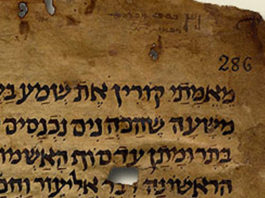 286
מאמתי קורין את שמע
משעה שהכהנים נכנסים
בתרומתן עד סוף האשמו
הראשונה דבר אליעזר וחכ